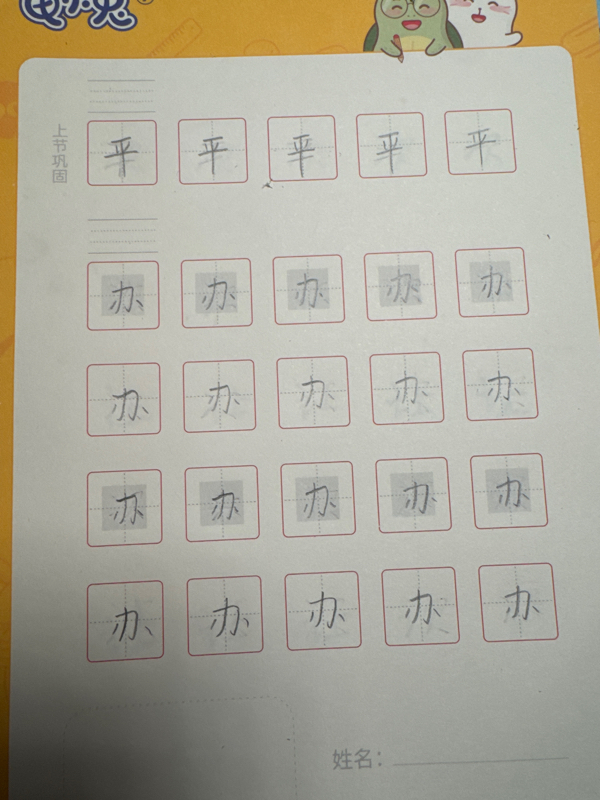 上节巩固
平 平 平 平 平
办 办 办 办 办
办 办 办 办 办
办 办 办 办 办
办 办 办 办 办
姓名：